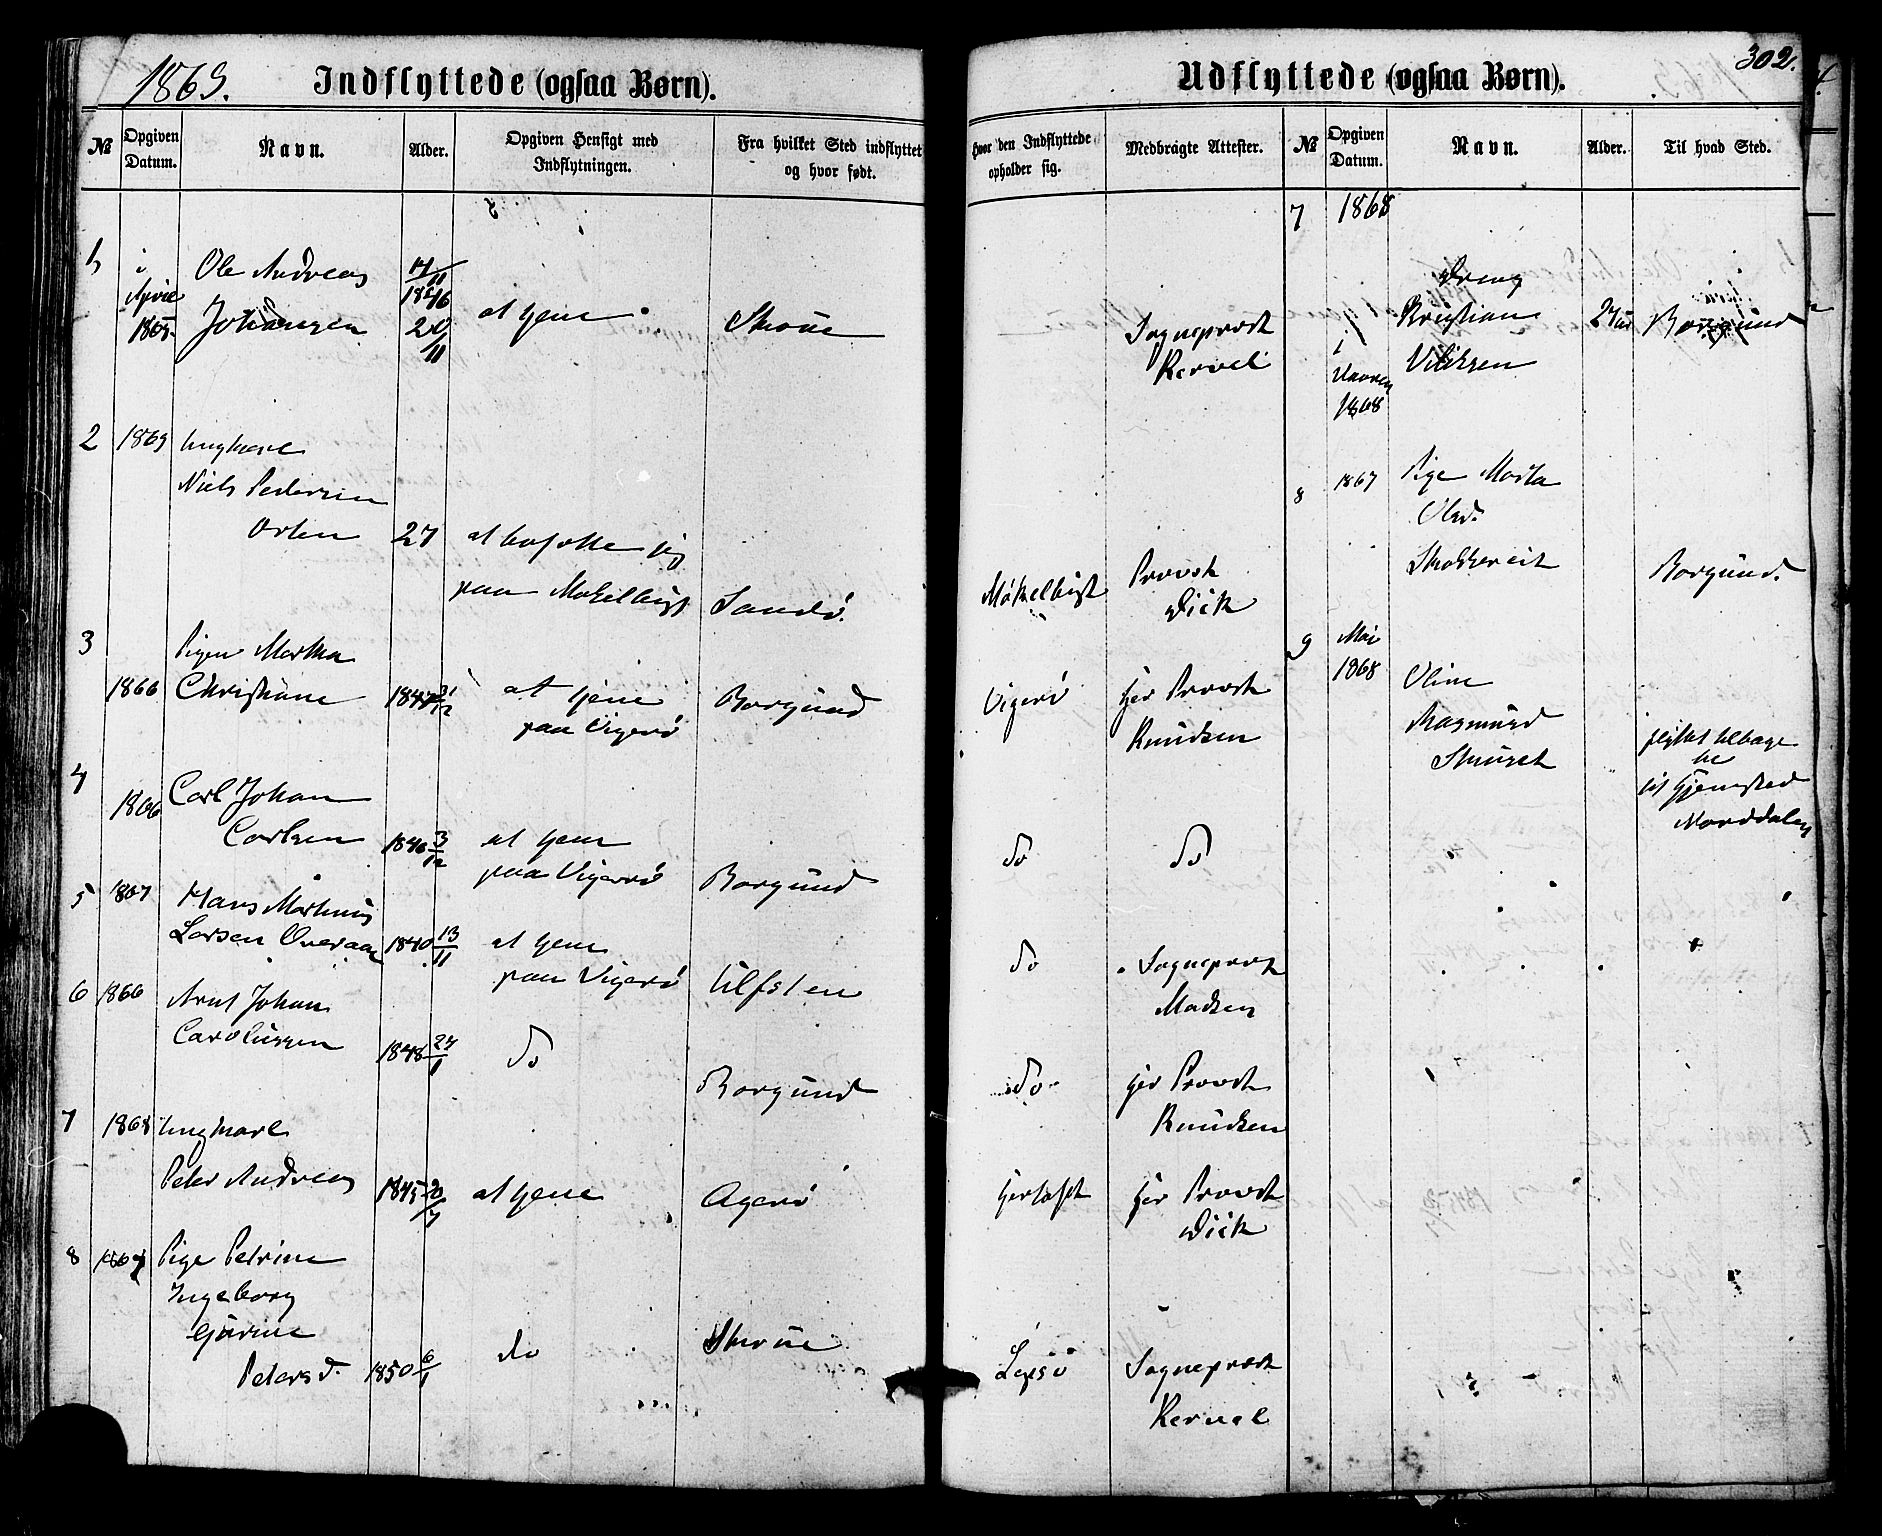 1865.
Indflyttede (ogsaa Børn).
№
Opgiven Datum.
Navn.
Alder.
Opgiven Hensigt med Indflytningen.
Fra hvilket Sted indflyttet og hvor født.
1
i
April
1865.
Ole Andreas
Johansen
at tjene
Skoue
2
1865
Ungkarl
Niels Pedersen
Orten
27
at bosætte sig
paa Mokelbust
Sandø.
3
Pigen Martha
1866
Christiane
at tjene
paa Vigerø
Borgund
4
1866
Carl Johan
Carlsen
1846 3/12
at tjene
paa Vigerø
Borgund
5
1867
Hans Martinus
Larsen Overaae
1840 13/11
at tjene
paa Vigerø
Ulfsten
6
1866
Arnt Johan
Carolussen
1848 24/1
do
Borgund
7
1868
Ungkarl
Peter Andreas
1845 20/7
at tjene
Agerø
8
Pige Petrine
Ingeborg
Gurine
Petersd.
1850 6/1
do
Skoue
Udflyttede (ogsaa Børn).
302.
Hvor den Indflyttede opholder sig.
Medbragte Attester.
№
Opgiven Datum.
Navn.
Alder.
Til hvad Sted.
Sogneprest
Kervel
Møkelbust
Provst
Dick
Vigerø
Her Provst
Knudsen
do
do
do
Sogneprest
Madsen
do
Her Provst
Knudsen
Her Provst
Dick
Lepsø
Sogneprest
Kervel
7
1868
i
Vaaren
1868
Dreng
Kristian
Borgund
8
1867
Pige Marta
Olsd.
Borgund.
9
Mai
1868
Oline
Rasmusd
flyttet tilbage
til Hjemsted
Norddalen